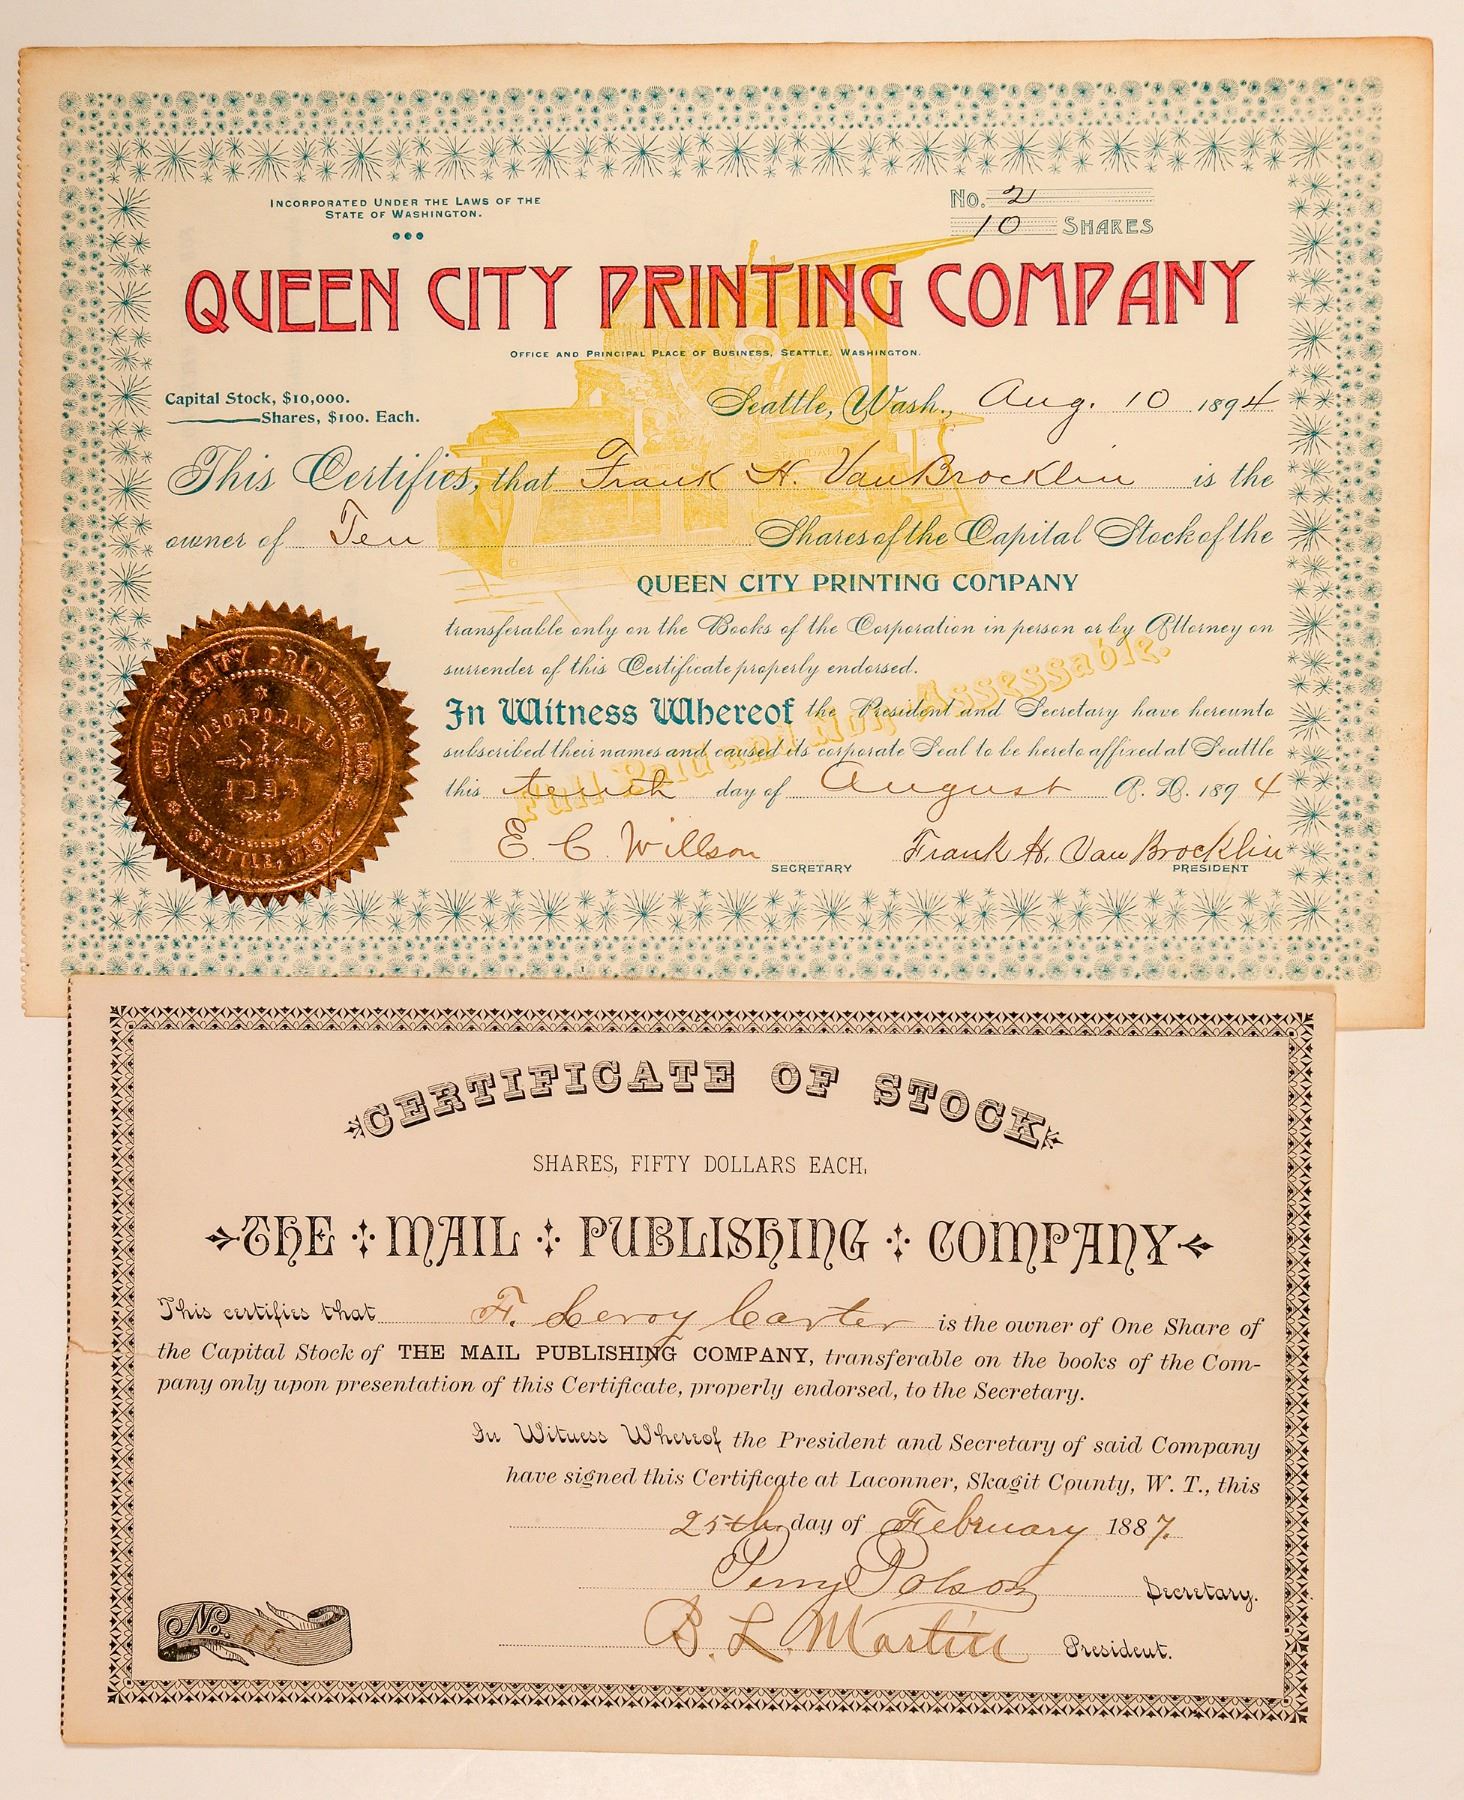 INCORPORATED UNDER THE LAWS OF THE
STATE OF WASHINGTON.
No. 2
10 SHARES
QUEEN CITY PRINTING COMPANY
OFFICE AND PRINCIPAL PLACE OF BUSINESS, SEATTLE, WASHINGTON.
Capital Stock, $10,000.
Shares, $100. Each.
Seattle, Wash., Aug. 10 1894
This Certifies, that Frank H. Van Brocklin is the
owner of Ten Shares of the Capital Stock of the
QUEEN CITY PRINTING COMPANY
transferable only on the Books of the Corporation in person or by Attorney on
surrender of this Certificate properly endorsed.
In Witness Whereof the President and Secretary have hereunto
subscribed their names and caused its corporate Seal to be hereto affixed at Seattle
this tenth day of August A. D. 1894
Full Paid and Non Assessable.
E. C. Willson SECRETARY
Frank H. Van Brocklin PRESIDENT
QUEEN CITY PRINTING CO.
INCORPORATED
1894
SEATTLE, WASH.
STANDARD
CERTIFICATE OF STOCK
SHARES, FIFTY DOLLARS EACH,
THE MAIL PUBLISHING COMPANY
This certifies that F. Leroy Carter is the owner of One Share of
the Capital Stock of THE MAIL PUBLISHING COMPANY, transferable on the books of the Com-
pany only upon presentation of this Certificate, properly endorsed, to the Secretary.
In Witness Whereof the President and Secretary of said Company
have signed this Certificate at Laconner, Skagit County, W. T., this
25th day of February 1887.
Perry Polson Secretary.
B. L. Martin President.
No.